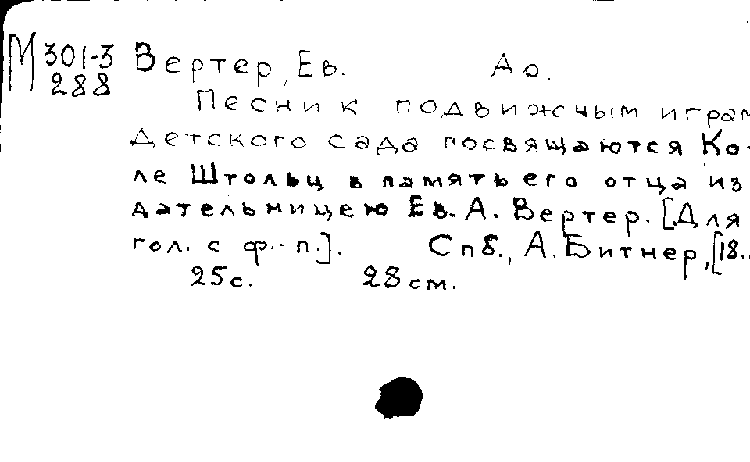 М 301-3 Вертер, Ев. А о.
288
Песни к подвижным играм
детского сада посвящаются Ко-
ле Штольц в память его отца из
дательницею Ев. А. Вертер. [Для
гол. с ф.-п.]. Спб., А. Битнер, [18..
25 с. 28 см.